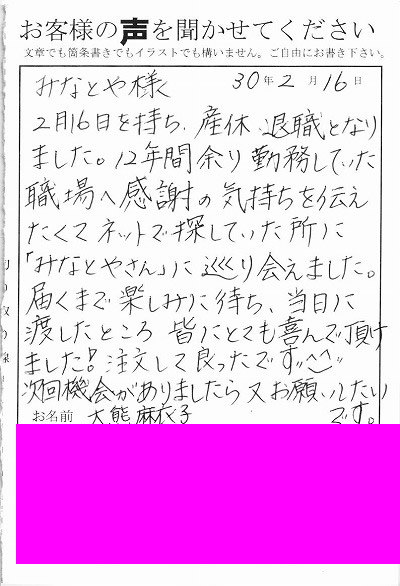 お客様の声を聞かせてください
文章でも箇条書きでもイラストでも構いません。ご自由にお書き下さい。
みなとや様 30年2月16日
2月16日を持ち、産休、退職となり
ました。12年間余り勤務していた
職場へ感謝の気持ちを伝え
たくてネットで探していた所に
「みなとやさん」に巡り会えました。
届くまで楽しみに待ち、当日に
渡したところ 皆にとても喜んで頂け
ました!注文して良ったです。^^
次回機会がありましたら又お願いしたい
です。
お名前 大熊麻衣子